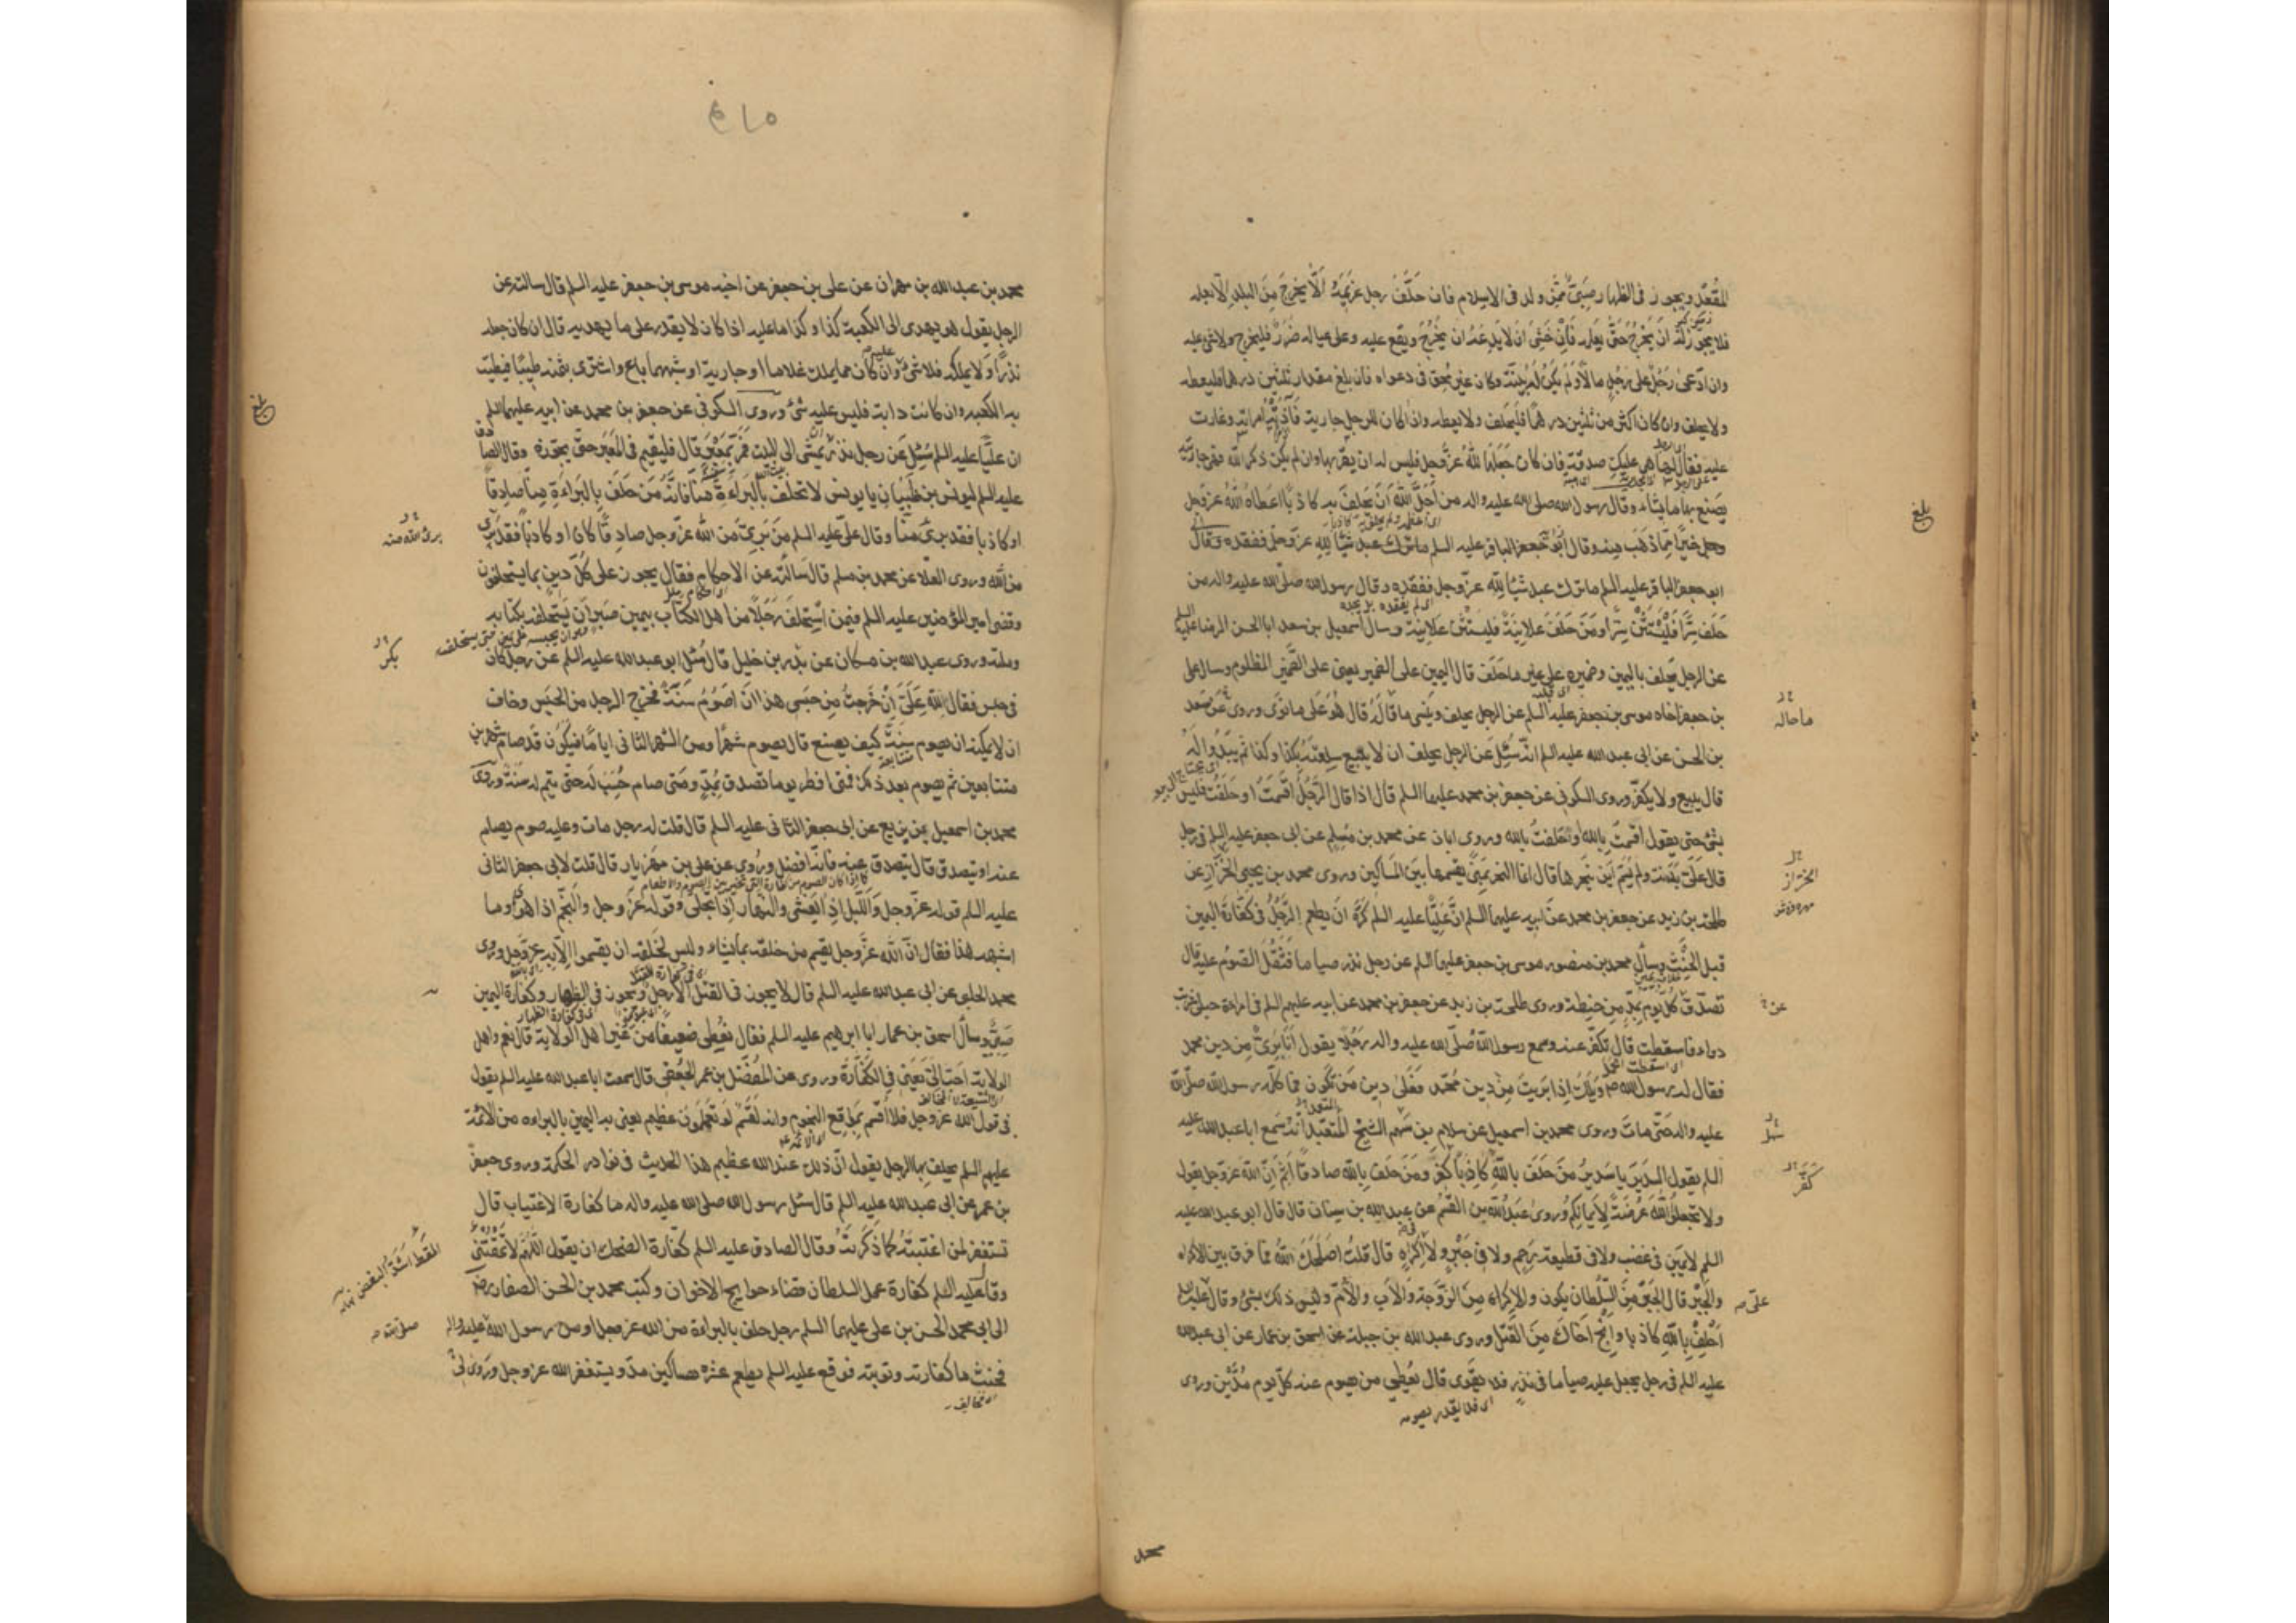 المقعد ويجوز في الظهار صبي ممن ولد في الاسلام فان حلف رجل غريمه ألا يخرج من البلد الا بعلمه
فلا يجوز له ان يخرج حتى يعلمه فان خشي ان لا يدعه ان يخرج ويقع عليه وعلى عياله ضرر فليخرج ولا شيء عليه
وان ادعى رجل على رجل مالا ولم يكن له بينة وكان غير محق في دعواه فان بلغ مقدار ثلثين درهما فليعطه
ولا يحلف وان كان اكثر من ثلثين درهما فليحلف ولا يعطه واذا كان للرجل جارية فآذته امراته وغارت
عليه فقال لها هي عليك صدقة فان كان جعلها لله عز وجل فليس له ان يقربها وان لم يكن ذكر الله فهي جاريته
يصنع بها ما يشاء وقال رسول الله صلى الله عليه واله من اجل الله ان يحلف به كاذبا اعطاه الله عز وجل
وجل خيرا مما ذهب منه وقال ابو جعفر الباقر عليه السلم ما ترك عبد شيئا لله عز وجل ففقده وقال
ابو جعفر الباقر عليه السلم ما ترك عبد شيئا لله عز وجل ففقده وقال رسول الله صلى الله عليه واله من
حلف سرا فليستثن سرا ومن حلف علانية فليستثن علانية وسال اسمعيل بن سعد ابا الحسن الرضا عليه السلم
عن الرجل يحلف باليمين وضميره على غير ما حلف قال اليمين على الضمير يعني على الضمير المظلوم وسال علي
بن جعفر اخاه موسى بن جعفر عليه السلم عن الرجل يحلف وينسى ما قاله قال هو على ما نوى وروى عن سعد
بن الحسن عن ابي عبد الله عليه السلم انه سئل عن الرجل يحلف ان لا يبيع سلعته بكذا وكذا ثم يبدو له
قال يبيع ولا يكفر وروى السكوني عن جعفر بن محمد عليهما السلم قال اذا قال الرجل اقسمت او حلفت فليس
بشيء حتى يقول اقسمت بالله او حلفت بالله وروى ابان عن محمد بن مسلم عن ابي جعفر عليه السلم في رجل
قال علي بدنة ولم يسم اين ينحرها قال انما النحر بمنى يقسمها بين المساكين وروى محمد بن يحيى الخزاز عن
طلحة بن زيد عن جعفر بن محمد عن ابيه عليهما السلم ان عليا عليه السلم كره ان يطعم الرجل في كفارة اليمين
قبل الحنث وسال محمد بن منصور موسى بن جعفر عليهما السلم عن رجل نذر صياما فثقل الصوم عليه قال
تصدق كل يوم بمد من حنطة وروى طلحة بن زيد عن جعفر بن محمد عن ابيه عليهم السلم في امراة حبلى شربت
دواء فاسقطت قال تكفر عنه وسمع رسول الله صلى الله عليه واله رجلا يقول انا بريء من دين محمد
فقال له رسول الله ص ويلك اذا برئت من دين محمد فعلى دين من تكون فما كلمه رسول الله صلى الله
عليه واله حتى مات وروى محمد بن اسمعيل عن سلام بن سهم الشيخ المتعبد انه سمع ابا عبد الله عليه
السلم يقول لسدير يا سدير من حلف بالله كاذبا كفر ومن حلف بالله صادقا اثم ان الله عز وجل يقول
ولا تجعلوا الله عرضة لايمانكم وروى عبد الله بن القسم عن عبد الله بن سنان قال قال ابو عبد الله عليه
السلم لا يمين في غضب ولا في قطيعة رحم ولا في جبر ولا اكراه قال قلت اصلحك الله فما فرق بين الاكراه
والجبر قال الجبر من السلطان يكون والاكراه من الزوجة والاب والام وليس ذلك بشيء وقال عليه السلم
احلف بالله كاذبا وانج اخاك من القتل وروى عبد الله بن جبلة عن اسحق بن عمار عن ابي عبد الله
عليه السلم في رجل يجعل عليه صياما في نذر فلا يقوى قال يعطي من يصوم عنه كل يوم مدين وروى
اي فلا يقدر بصومه
بلغ
ما حاله
الخزاز
عن
كفر
على
محمد
محمد بن عبد الله بن مهران عن علي بن جعفر عن اخيه موسى بن جعفر عليه السلم قال سالته عن
الرجل يقول هو يهدي الى الكعبة كذا وكذا ما عليه اذا كان لا يقدر على ما يهديه قال ان كان جعله
نذرا ولا يملكه فلا شيء عليه وان كان مما يملك غلاما او جارية او شبههما باع واشترى بثمنه طيبا فيطيب
به الكعبة وان كانت دابة فليس عليه شيء وروى السكوني عن جعفر بن محمد عن ابيه عليهما السلم
ان عليا عليه السلم سئل عن رجل نذر ان يمشي الى البيت فمر بمعبر قال فليقم في المعبر حتى يجوزه وقال الصادق
عليه السلم ليونس بن ظبيان يا يونس لا تحلف بالبراءة منا فانه من حلف بالبراءة منا صادقا
او كاذبا فقد برئ منا وقال علي عليه السلم من بريء من الله عز وجل صادقا كان او كاذبا فقد برئ
من الله وروى العلاء عن محمد بن مسلم قال سالته عن الاحكام فقال يجوز على كل دين بما يستحلفون
وقضى امير المؤمنين عليه السلم فيمن استحلف رجلا من اهل الكتاب بيمين صبر ان يستحلف بكتابه
وملته وروى عبد الله بن مسكان عن بدر بن خليل قال سئل ابو عبد الله عليه السلم عن رجل كان
في حبس فقال لله علي ان خرجت من حبسي هذا ان اصوم سنة فخرج الرجل من الحبس وخاف
ان لا يمكنه ان يصوم سنة كيف يصنع قال يصوم شهرا ومن الشهر الثاني اياما فيكون قد صام شهرين
متتابعين ثم يصوم بعد ذلك فمتى افطر يوما تصدق بمد ومتى صام حسب له حتى يتم له سنة وروى
محمد بن اسمعيل بن بزيع عن ابي جعفر الثاني عليه السلم قال قلت له رجل مات وعليه صوم يصام
عنه او يتصدق قال يتصدق عنه فانه افضل وروي عن علي بن مهزيار قال قلت لابي جعفر الثاني
عليه السلم قوله عز وجل والليل اذا يغشى والنهار اذا تجلى وقوله عز وجل والنجم اذا هوى وما
اشبه هذا فقال ان الله عز وجل يقسم من خلقه بما يشاء وليس لخلقه ان يقسموا الا به عز وجل وروى
محمد الحلبي عن ابي عبد الله عليه السلم قال لا يجوز في القتل الا رجل ويجوز في الظهار وكفارة اليمين
صبي وسال اسحق بن عمار ابا ابرهيم عليه السلم فقال نعطي ضعيفا من غير اهل الولاية قال نعم واهل
الولاية احب الي يعني في الكفارة وروى عن المفضل بن عمر الجعفي قال سمعت ابا عبد الله عليه السلم يقول
في قول الله عز وجل فلا اقسم بمواقع النجوم وانه لقسم لو تعلمون عظيم يعني به اليمين بالبراءة من الائمة
عليهم السلم يحلف بها الرجل يقول ان ذلك عند الله عظيم هذا الحديث في نوادر الحكمة وروى جعفر
بن عمر عن ابي عبد الله عليه السلم قال سئل رسول الله صلى الله عليه واله ما كفارة الاغتياب قال
تستغفر لمن اغتبته كما ذكرته وقال الصادق عليه السلم كفارة الضحك ان يقول اللهم لا تمقتني
وقال عليه السلم كفارة عمل السلطان قضاء حوايج الاخوان وكتب محمد بن الحسن الصفار رض
الى ابي محمد الحسن بن علي عليهما السلم رجل حلف بالبراءة من الله عز وجل او من رسول الله عليه واله
فحنث ما كفارته وتوبته فوقع عليه السلم يطعم عشرة مساكين مد ويستغفر الله عز وجل وروى
بلغ
برئ الله منه
بكر
المقط اشد البغض